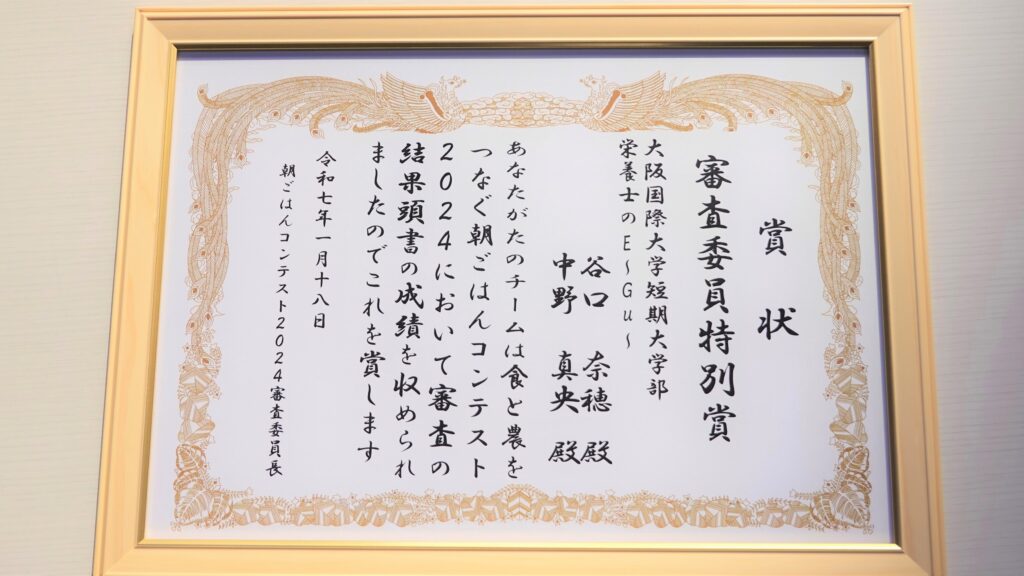 賞状
審査委員特別賞
大阪国際大学短期大学部
栄養士のE~Gu~
谷口 奈穂 殿
中野 真央 殿
あなたがたのチームは食と農を
つなぐ朝ごはんコンテスト
2024において審査の
結果頭書の成績を収められ
ましたのでこれを賞します
令和七年一月十八日
朝ごはんコンテスト2024審査委員長